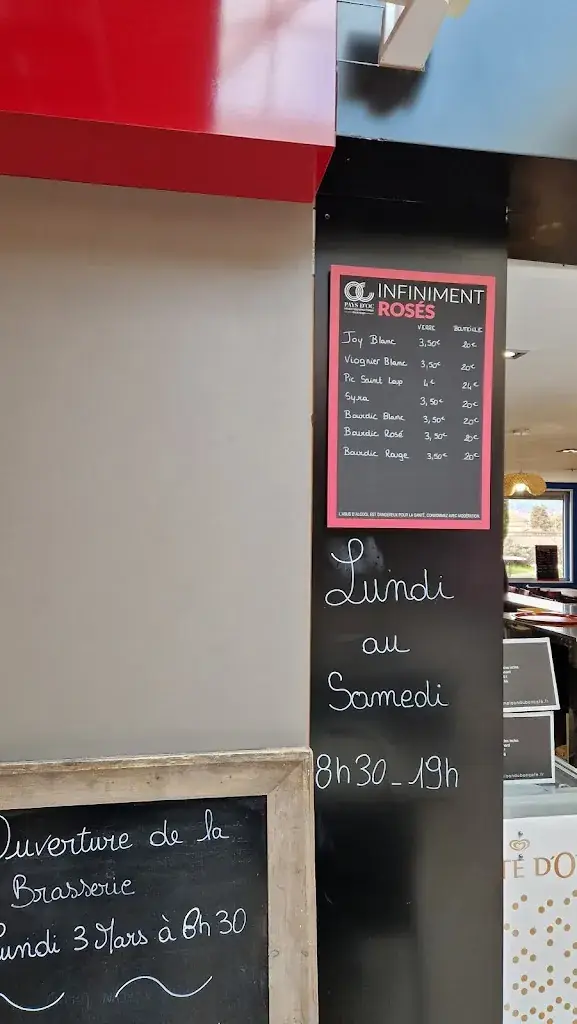 INFINIMENT
ROSÉS
PAYS D'OC
VERRE BOUTEILLE
Joy Blanc 3,50€ 20€
Viognier Blanc 3,50€ 20€
Pic Saint Loup 4€ 24€
Syra 3,50€ 20€
Bourdic Blanc 3,50€ 20€
Bourdic Rosé 3,50€ 20€
Bourdic Rouge 3,50€ 20€
L'ABUS D'ALCOOL EST DANGEREUX POUR LA SANTÉ, CONSOMMEZ AVEC MODÉRATION.
Lundi
au
Samedi
8h30_19h
Ouverture de la
Brasserie
Lundi 3 Mars à 8h30
TE D'O